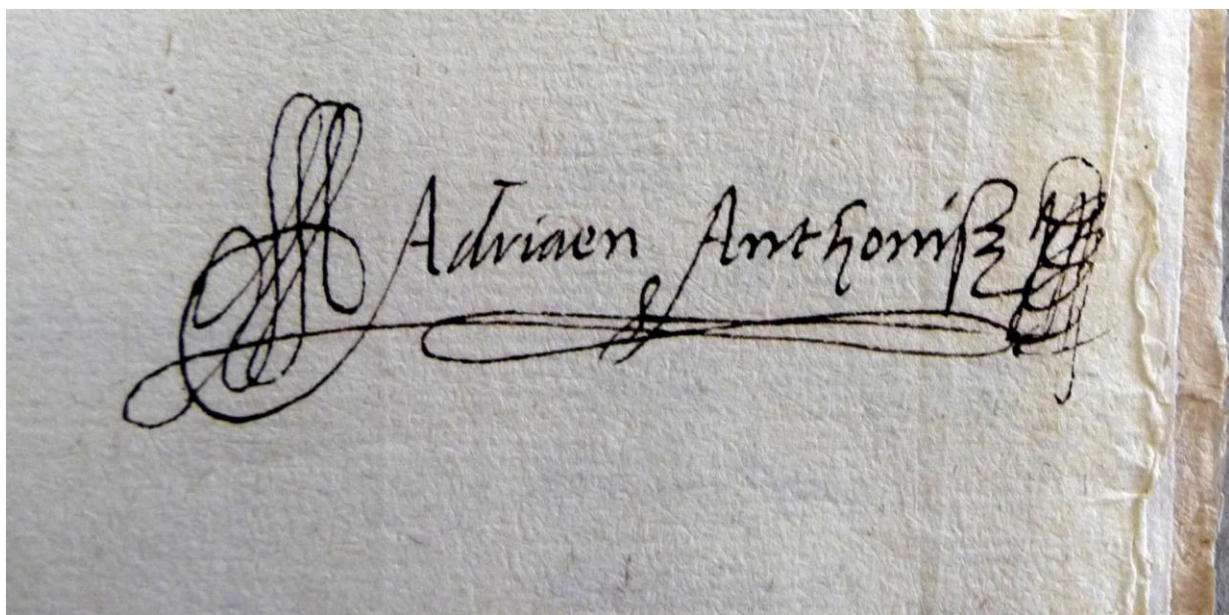 Adriaen Anthonisz